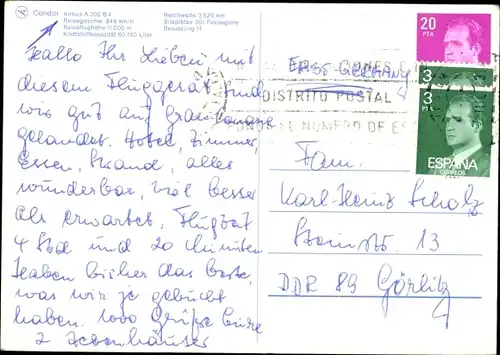 Condor Airbus A 300 B4
Reisegeschw. 849 km/h
Reiseflughöhe 11 000 m
Kraftstoffkapazität 60 740 Liter
Reichweite 3 520 km
Sitzplätze 301 Passagiere
Besatzung 11
Hallo Ihr Lieben mit
diesem Fluggerät sind
wir gut auf Gran Canaria
gelandet. Hotel, Zimmer,
Essen, Strand, alles
wunderbar, viel besser
als erwartet, Flugzeit
4 Std und 20 Minuten
Haben bisher das beste,
was wir je gebucht
haben. 1000 Grüße Eure
2
20
PTA
3
PTA
3
PTA
ESPAÑA
CORREOS
EAST-GERMANY
DISTRITO POSTAL
EL NUMERO DE
Fam.
Karl-Heinz Scholz
Steinstr. 13
DDR 89 Görlitz